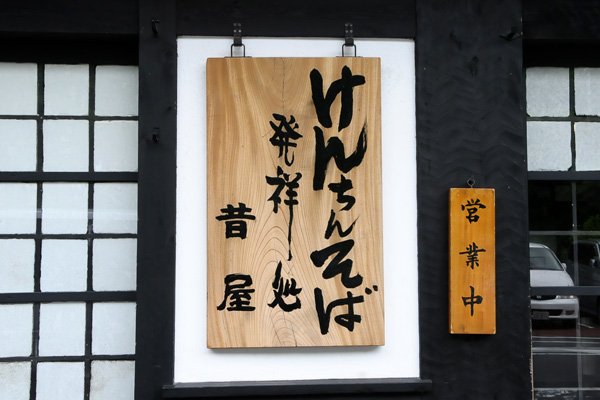 けんちんそば
発祥処
昔屋
営業中